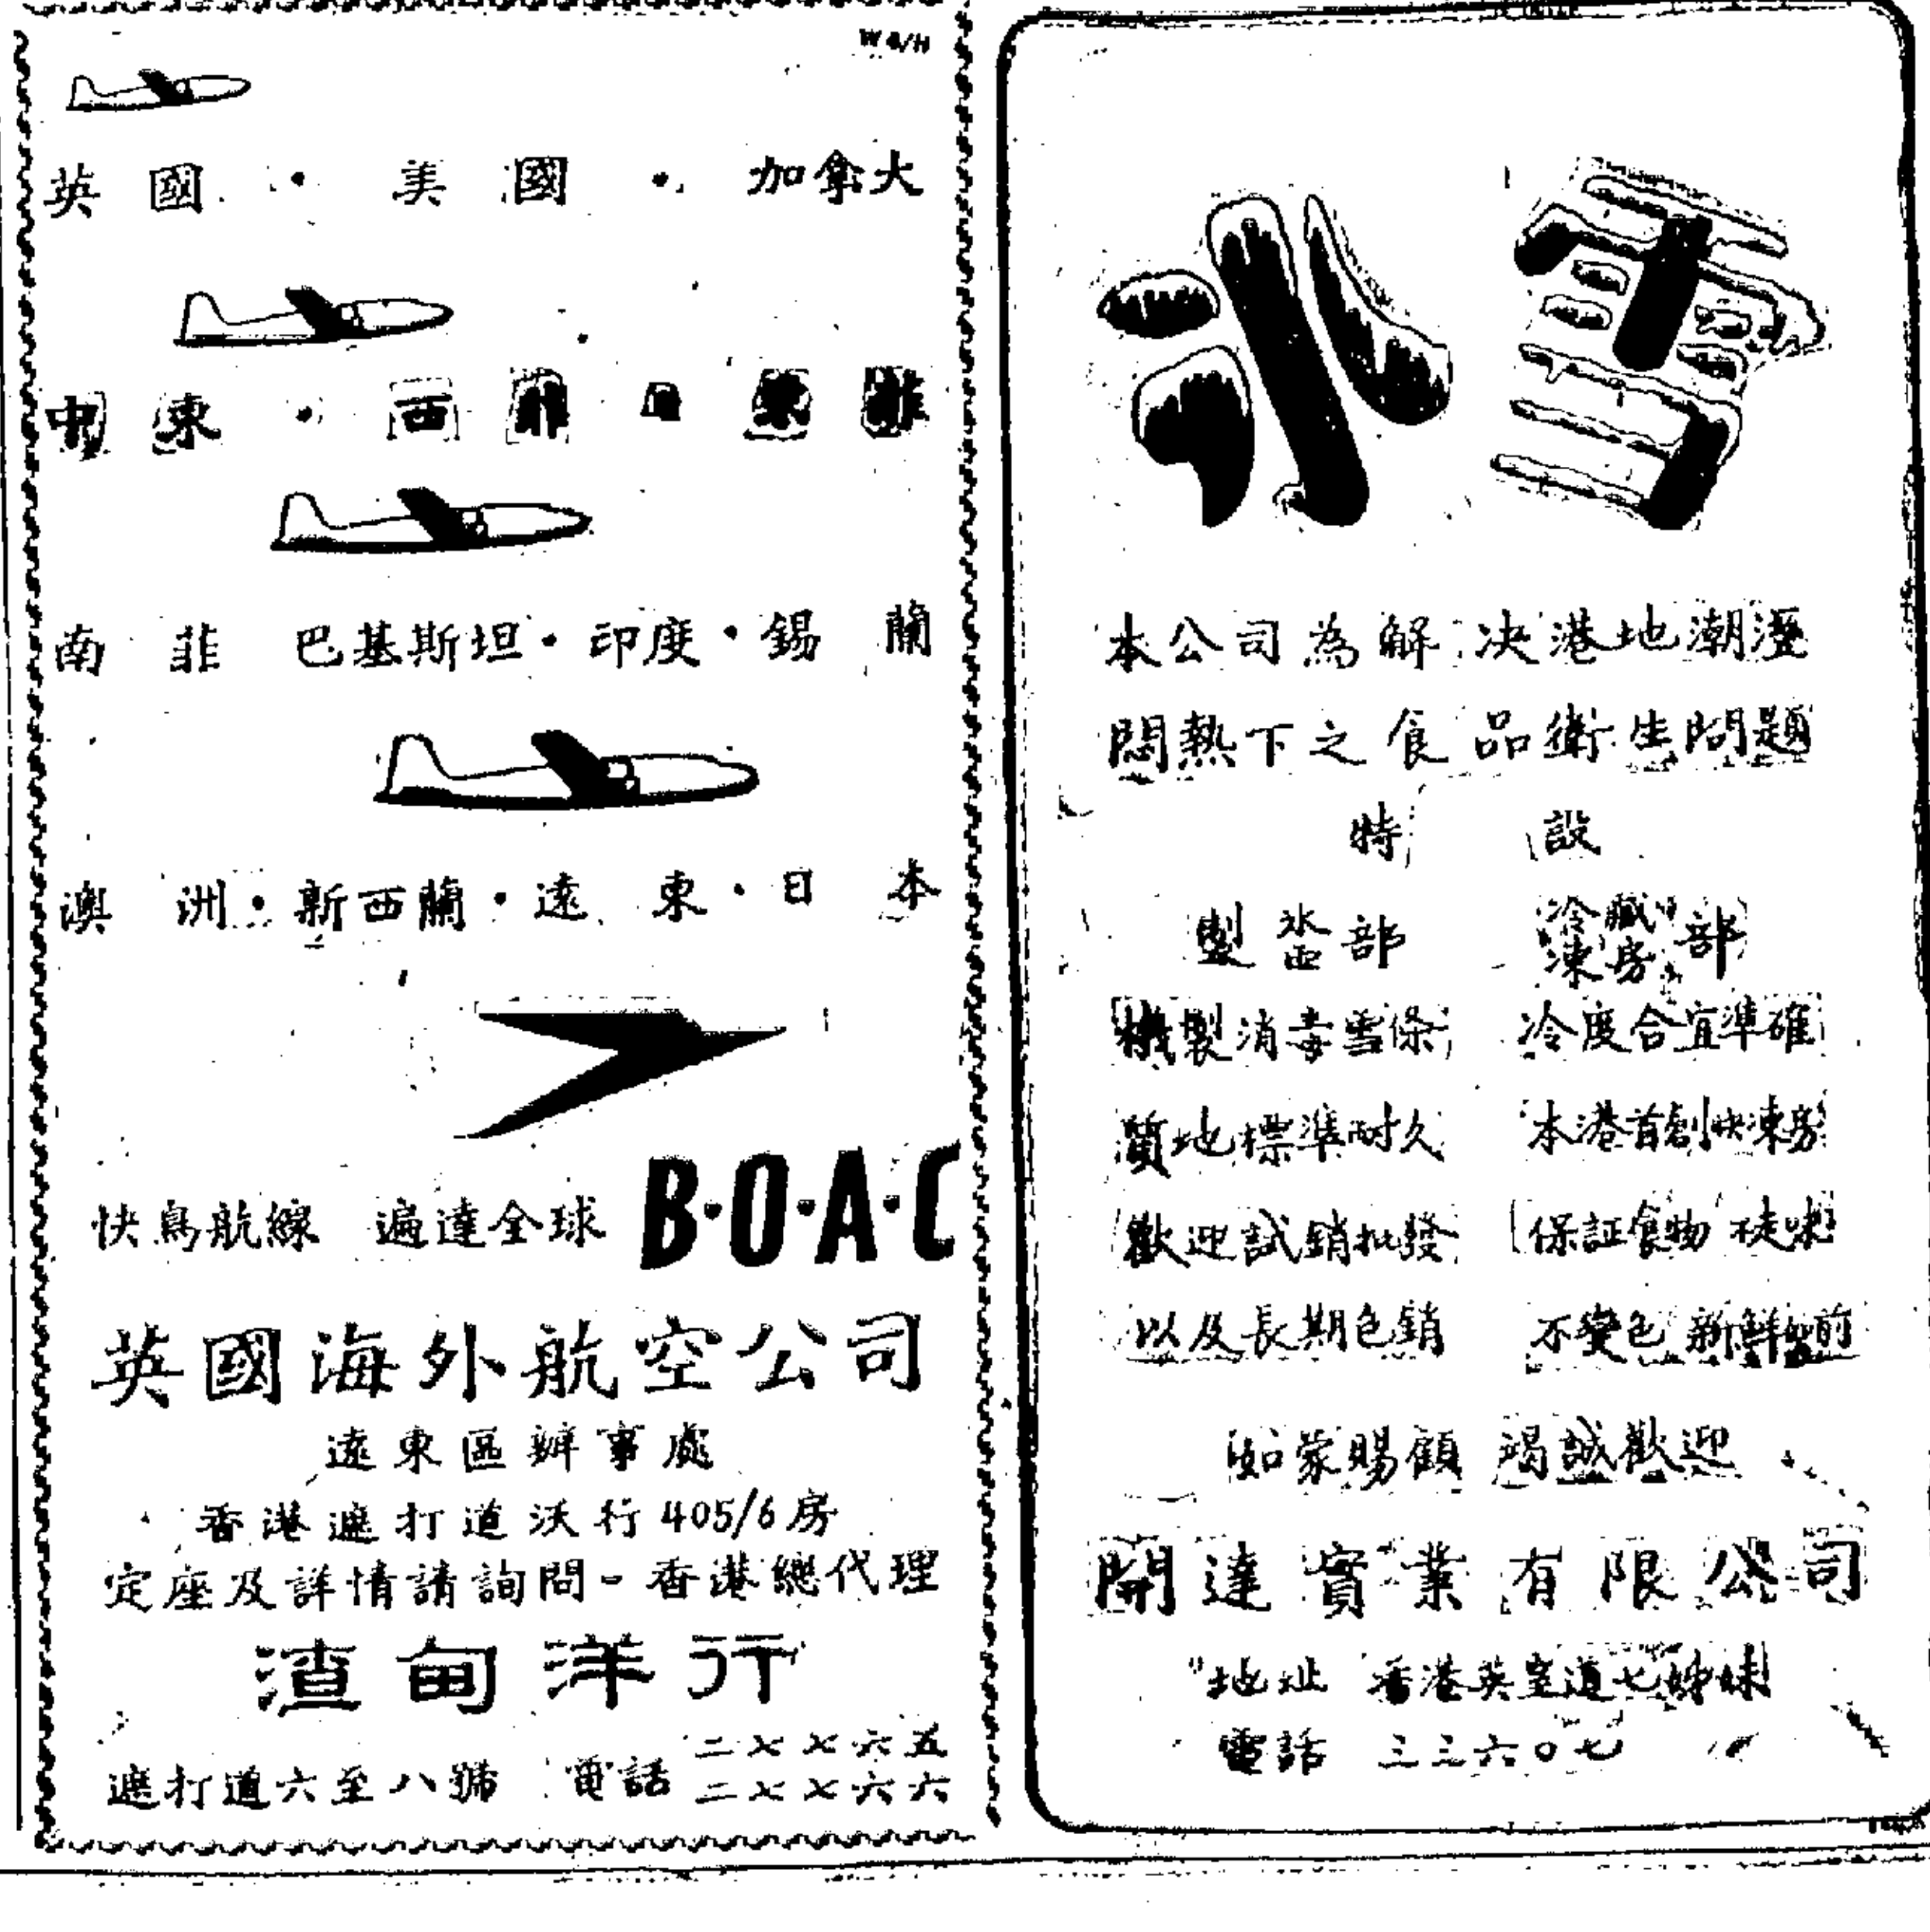 英國・美國・加拿大
中東・西菲・東菲
南菲 巴基斯坦・印度・錫蘭
澳洲・新西蘭・遠東・日本
快鳥航線 遍達全球 B・O・A・C
英國海外航空公司
遠東區辦事處
香港遮打道沃行405/6房
定座及詳情請詢問-香港總代理
渣甸洋行
遮打道六至八號 電話 二七七六五
二七七六六
冰雪
本公司為解決港地潮溼
悶熱下之食品衛生問題
特設
製冰部
機製消毒雪條
質地標準耐久
歡迎試銷批發
以及長期包銷
冷藏凍房部
冷度合宜準確
本港首創快凍房
保証食物不走味
不變色新鮮如前
如蒙賜顧 竭誠歡迎
開達實業有限公司
地址 香港英皇道七姊妹
電話 三三六〇七